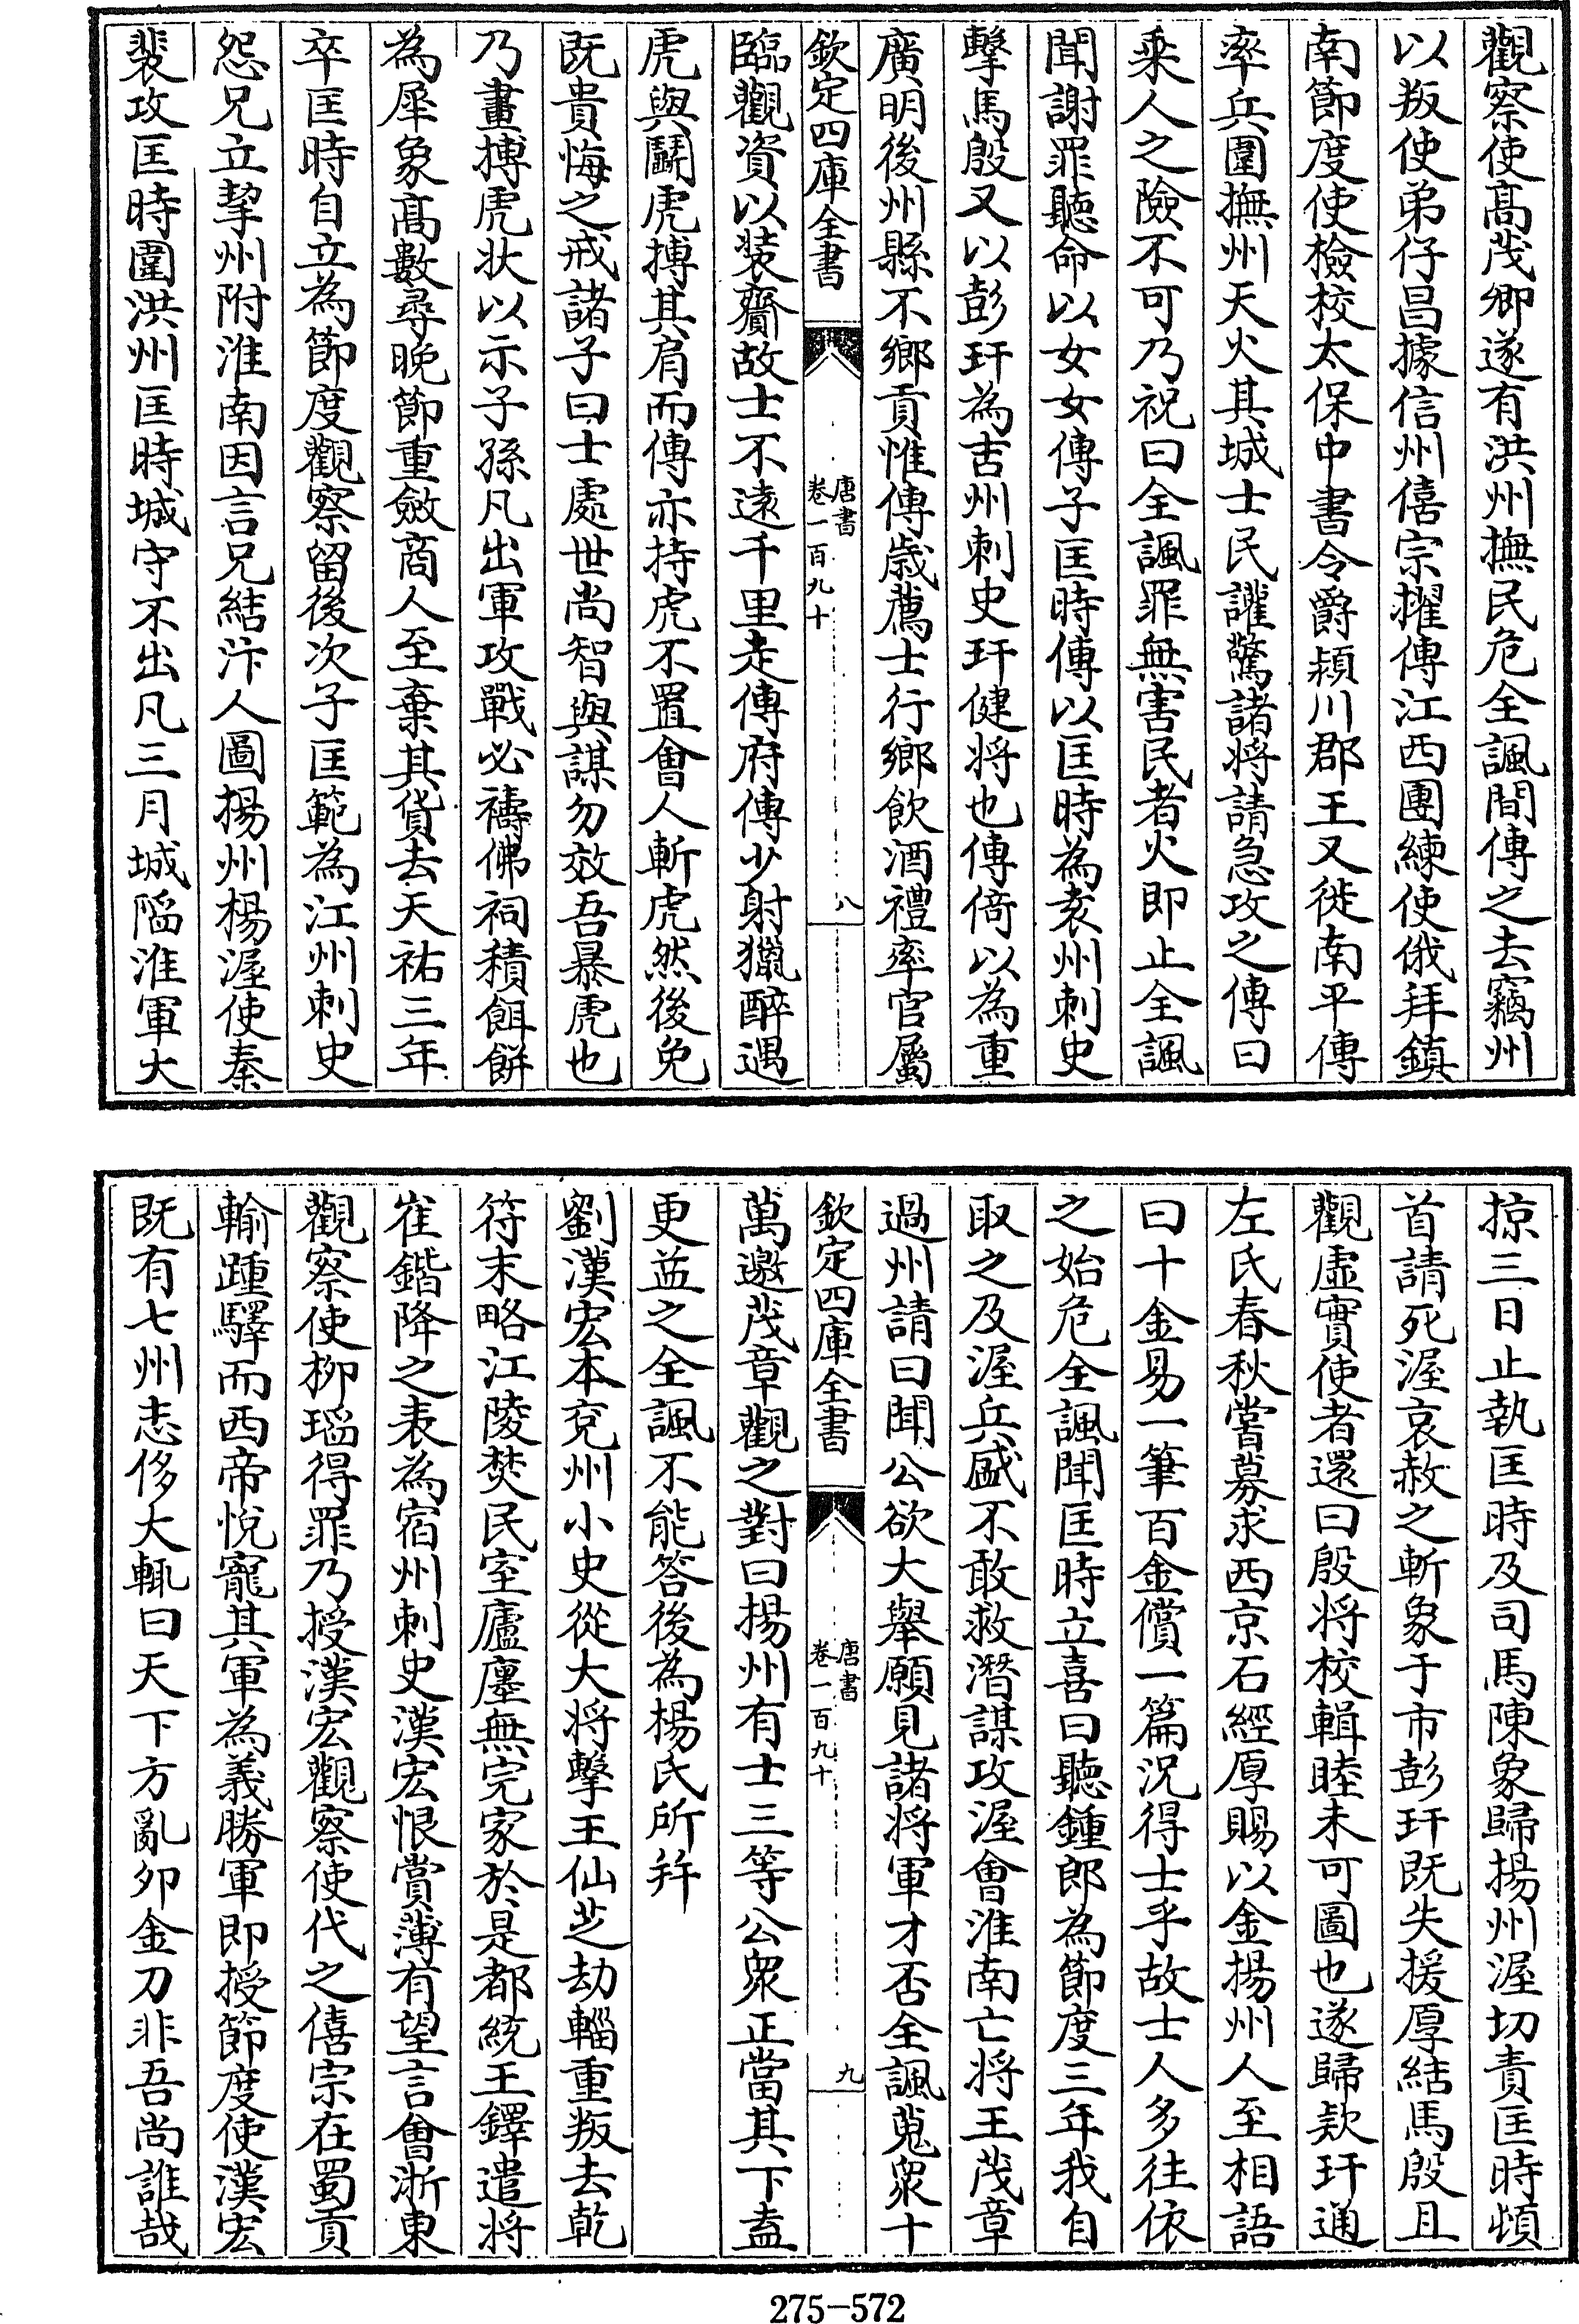 觀察使髙茂卿遂有洪州撫民危全諷間傳之去竊州
以叛使弟仔昌據信州僖宗擢傳江西團練使俄拜鎮
南節度使檢校太保中書令爵潁川郡王又徙南平傳
率兵圍撫州天火其城士民讙驚諸将請急攻之傳曰
乘人之險不可乃祝曰全諷罪無害民者火即止全諷
聞謝罪聽命以女女傳子匡時傳以匡時為袁州刺史
擊馬殷又以彭玕為吉州刺史玕健将也傳倚以為重
廣明後州縣不鄉貢惟傳嵗薦士行鄉飲酒禮率官屬
欽定四庫全書
唐書
卷一百九十
八
臨觀資以裝齎故士不遠千里走傳府傳少射獵醉遇
虎與鬭虎搏其肩而傳亦持虎不置會人斬虎然後免
既貴悔之戒諸子曰士處世尚智與謀勿效吾暴虎也
乃畫搏虎狀以示子孫凡出軍攻戰必禱佛祠積餌餅
為犀象髙數尋晚節重斂商人至棄其貨去天祐三年
卒匡時自立為節度觀察留後次子匡範為江州刺史
怨兄立挈州附淮南因言兄結汴人圖揚州楊渥使秦
裴攻匡時圍洪州匡時城守不出凡三月城陷淮軍大
掠三日止執匡時及司馬陳象歸揚州渥切責匡時頓
首請死渥哀赦之斬象于市彭玕既失援厚結馬殷且
觀虛實使者還曰殷将校輯睦未可圖也遂歸欵玕通
左氏春秋嘗募求西京石經厚賜以金揚州人至相語
曰十金易一筆百金償一篇況得士乎故士人多往依
之始危全諷聞匡時立喜曰聽鍾郎為節度三年我自
取之及渥兵盛不敢救潛謀攻渥會淮南亡将王茂章
過州請曰聞公欲大舉願見諸将軍才否全諷蒐衆十
欽定四庫全書
唐書
卷一百九十
九
萬邀茂章觀之對曰揚州有士三等公衆正當其下盍
更益之全諷不能答後為楊氏所并
劉漢宏本兗州小史從大将擊王仙芝劫輜重叛去乾
符末略江陵焚民室廬廛無完家於是都統王鐸遣将
崔鍇降之表為宿州刺史漢宏恨賞薄有望言會浙東
觀察使柳瑫得罪乃授漢宏觀察使代之僖宗在蜀貢
輸踵驛而西帝悅寵其軍為義勝軍即授節度使漢宏
既有七州志侈大輒曰天下方亂夘金刀非吾尚誰哉
275-572